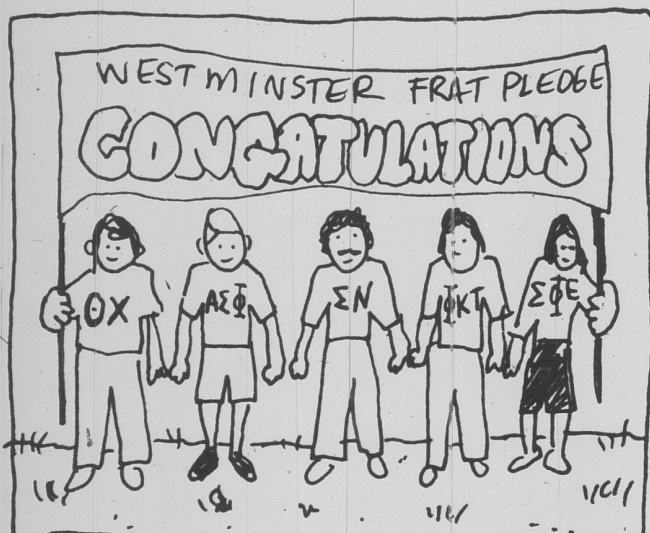 WESTMINSTER FRAT PLEDGE
CONGATULATIONS
ΘΧ
ΑΣΦ
ΣΝ
ΦΚΤ
ΣΦΕ